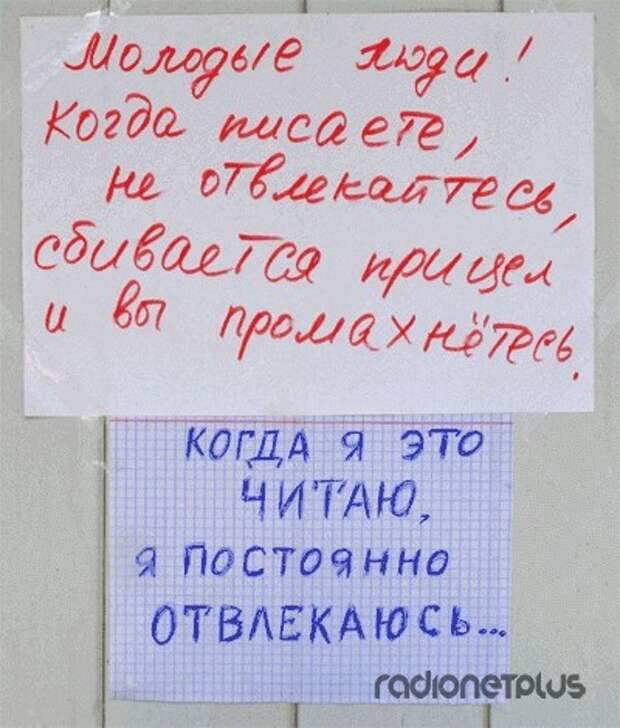 Молодые люди!
Когда писаете,
не отвлекайтесь,
сбивается прицел
и вы промахнётесь.
КОГДА Я ЭТО
ЧИТАЮ,
Я ПОСТОЯННО
ОТВЛЕКАЮСЬ...
radionetplus